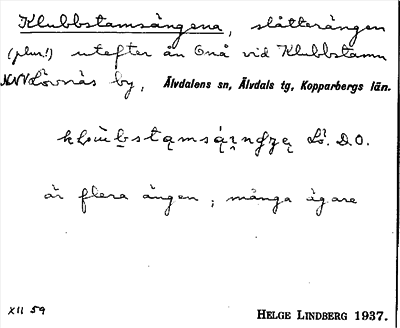 Klubbstamsängena, slåtterängen
(plur.) utefter ån Enå vid Klubbstamn
NNV Lövnäs by, Älvdalens sn, Älvdals tg, Kopparbergs län.
Lö. D.O.
är flera ängen; många ägare
XII 59
HELGE LINDBERG 1937.